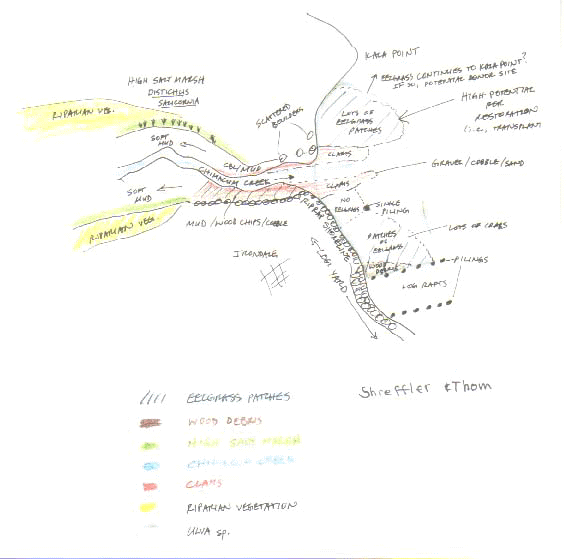 KALA POINT
EELGRASS CONTINUES TO KALA POINT?
IF SO, POTENTIAL DONOR SITE
HIGH SALT MARSH
DISTICHLIS
SALICORNIA
RIPARIAN VEG.
SCATTERED
BOULDERS
LOTS OF
EELGRASS
PATCHES
HIGH POTENTIAL
FOR
RESTORATION
(i.e., TRANSPLANT)
SOFT
MUD
COB/MUD
CLAMS
CHIMACUM CREEK
GRAVEL/COBBLE/SAND
SOFT
MUD
CLAMS
NO
EELGRASS
SINGLE
PILING
RIPARIAN VEG
MUD/WOOD CHIPS/COBBLE
RIPRAP SHORELINE
PATCHES
OF
EELGRASS
LOTS OF CRABS
IRONDALE
LOG YARD
WOOD
DEBRIS
PILINGS
LOG RAFTS
Shreffler & Thom
EELGRASS PATCHES
WOOD DEBRIS
HIGH SALT MARSH
CHIMACUM CREEK
CLAMS
RIPARIAN VEGETATION
ULVA sp.